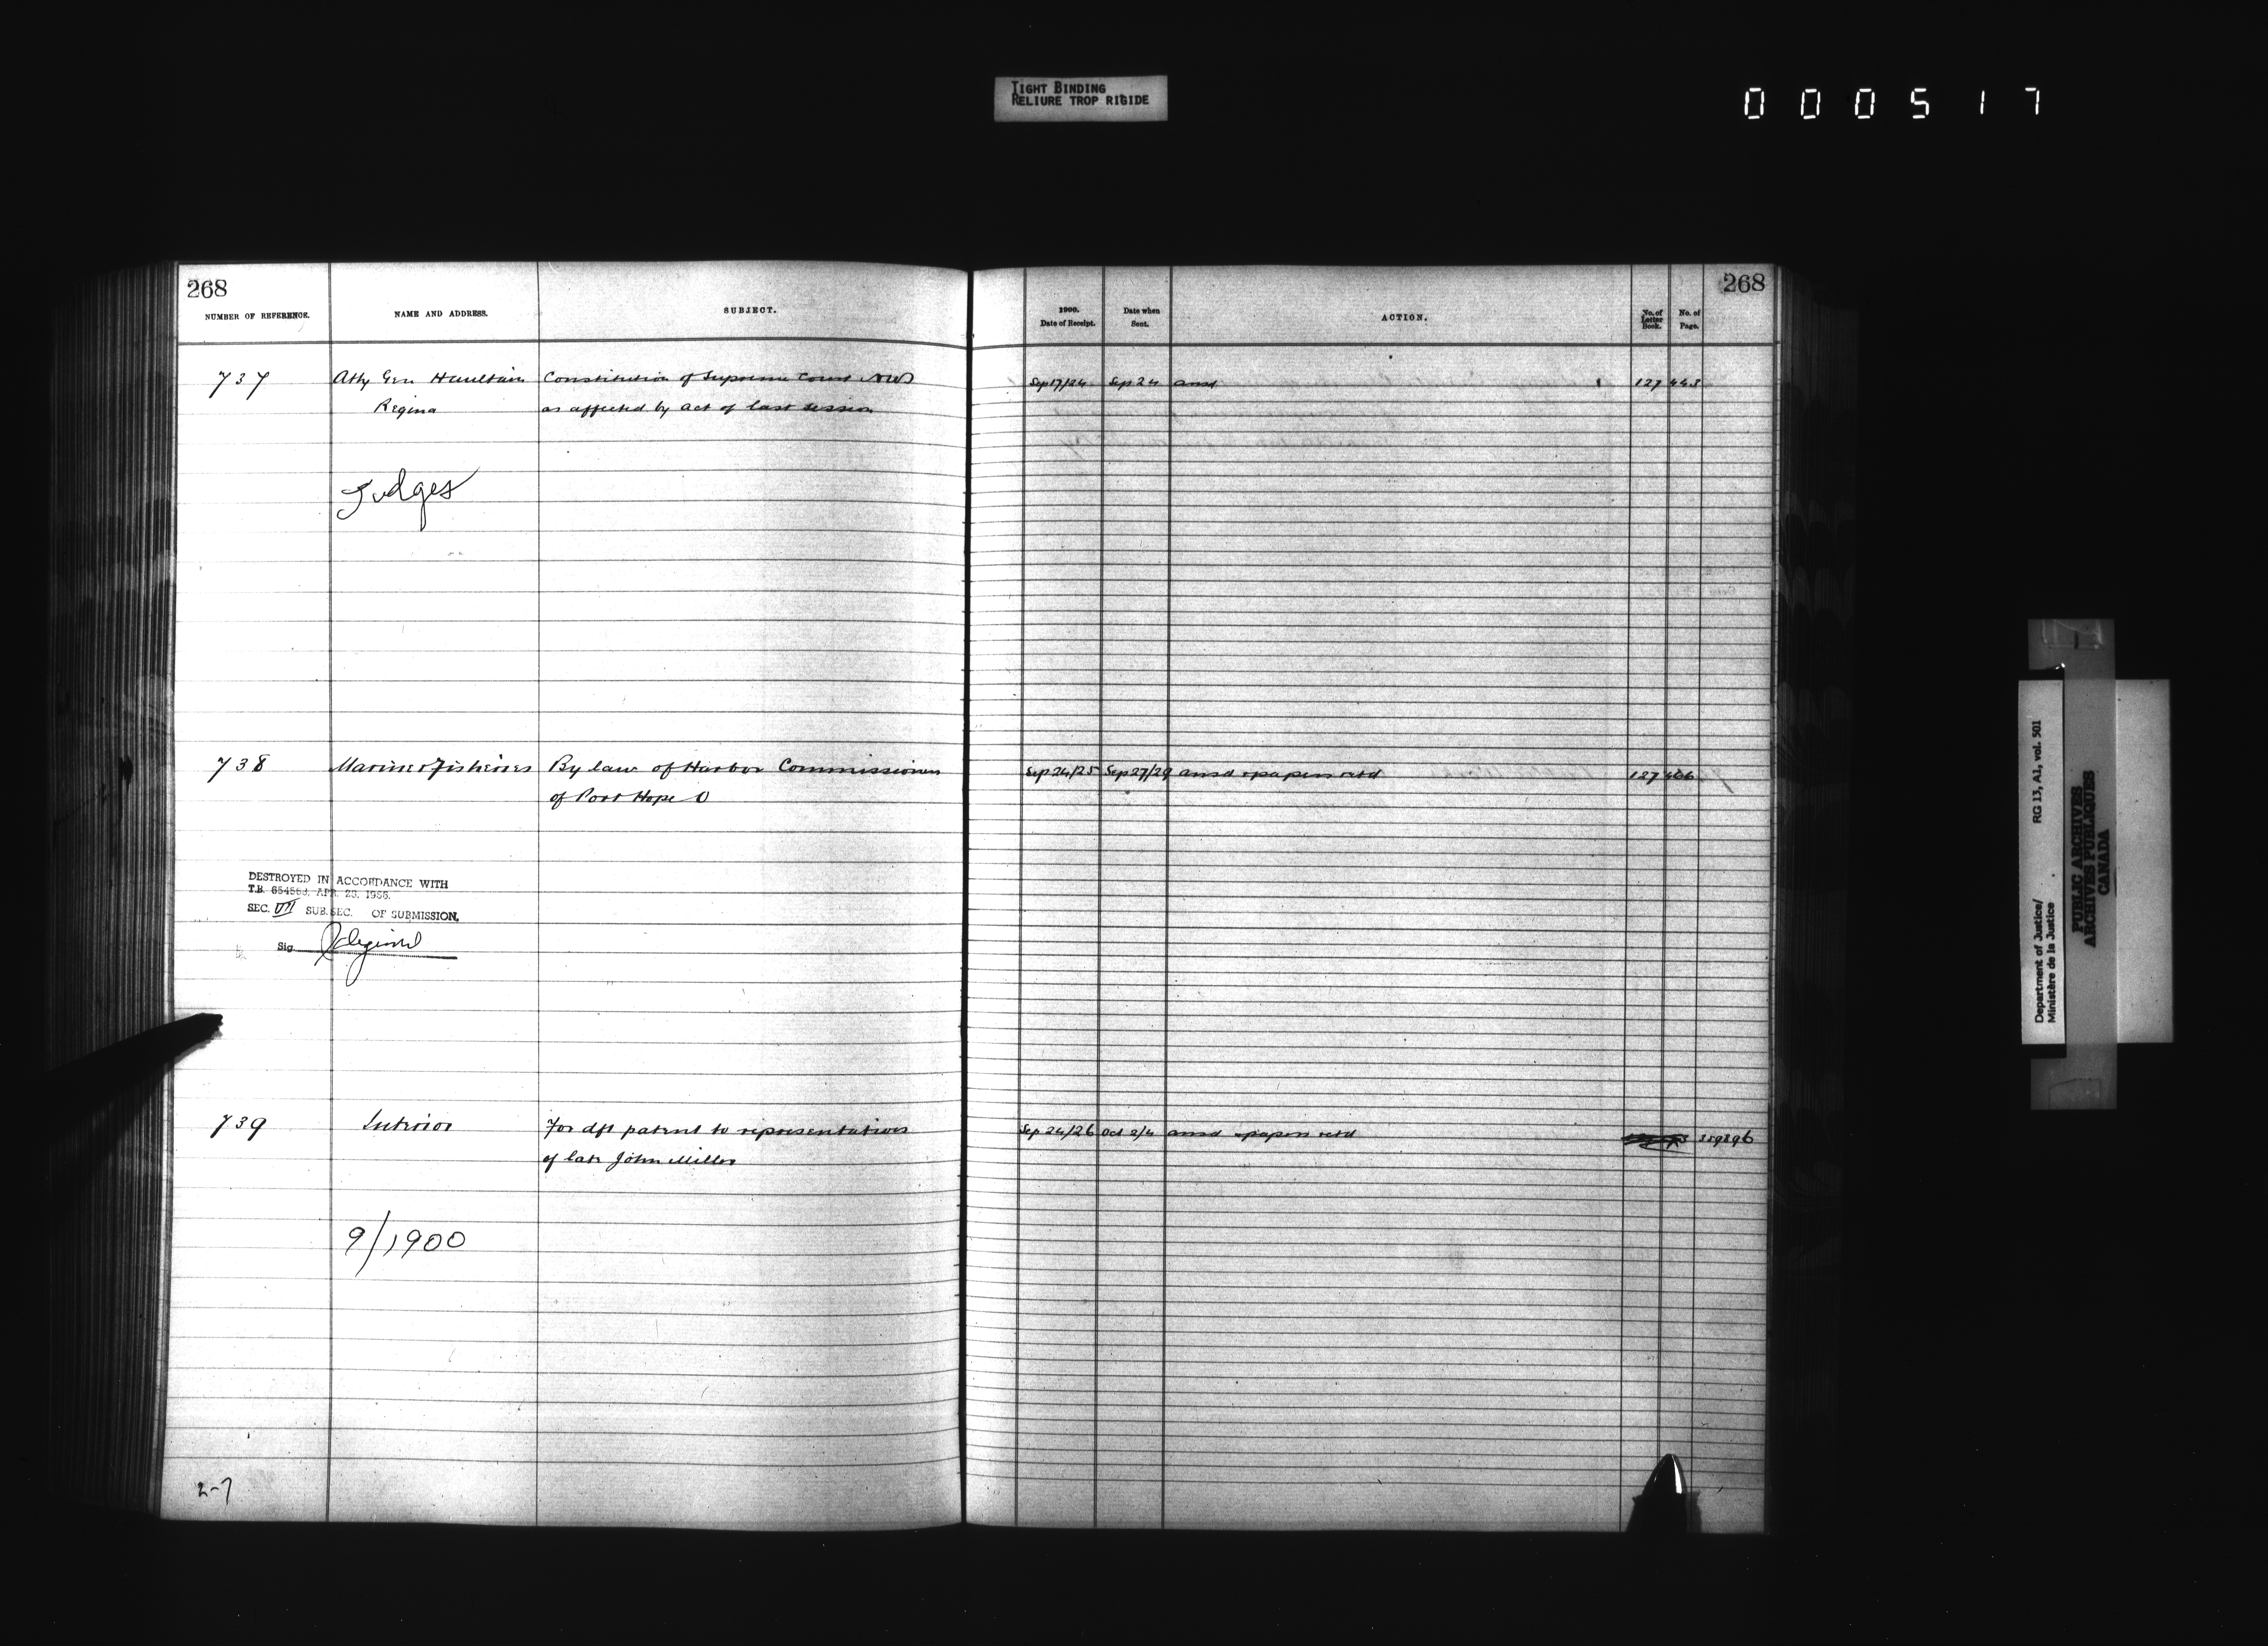 TIGHT BINDING
RELIURE TROP RIGIDE
000517
268
NUMBER OF REFERENCE. NAME AND ADDRESS. SUBJECT.
737 Atty Gen Haultain Constitution of Supreme Court NWT
Regina as affected by act of last session
Judges
738 Marine & Fisheries By law of Harbor Commissioners
of Port Hope O
DESTROYED IN ACCORDANCE WITH
T.B. 654568. APR. 23. 1966.
SEC. VII SUB. SEC. OF SUBMISSION.
Sig.
739 Interior For dft patent to representatives
of late John Miller
9/1900
2-7
268
1900. Date of Receipt. Date when Sent. ACTION. No. of Letter Book. No. of Page.
Sep 17/24 Sep 24 ansd 127 443
Sep 24/25 Sep 27/29 ansd & papers retd 127 466
Sep 24/26 Oct 2/4 ansd & papers retd
Department of Justice/ RG 13, A1, vol. 501
Ministère de la Justice
PUBLIC ARCHIVES
ARCHIVES PUBLIQUES
CANADA